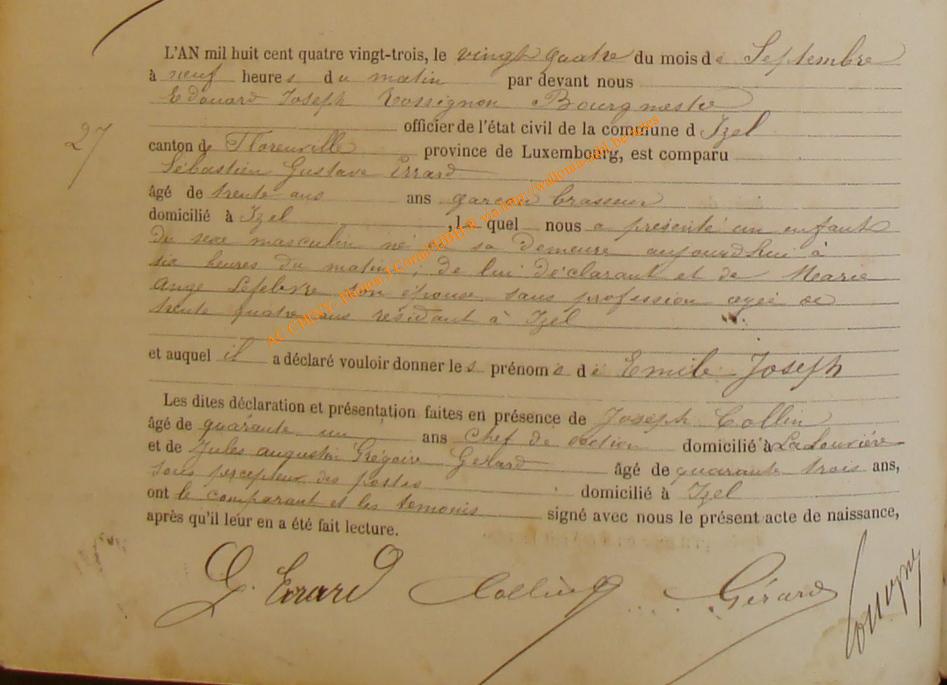 L'AN mil huit cent quatre vingt-trois, le vingt quatre du mois de Septembre
à neuf heures du matin par devant nous
Edouard Joseph Rossignon Bourgmestre
officier de l'état civil de la commune d Izel
27
canton de Florenville province de Luxembourg, est comparu
Sébastien Gustave Errard
âgé de trente ans ans garçon brasseur
domicilié à Izel , le quel nous a présenté un enfant
du sexe masculin né en sa demeure aujourd'hui à
six heures du matin, de lui déclarant et de Marie
Ange Lefebvre son épouse sans profession agée de
trente quatre ans résidant à Izel
et auquel il a déclaré vouloir donner les prénoms de Emile Joseph
Les dites déclaration et présentation faites en présence de Joseph Collin
âgé de quarante un ans Chef de section domicilié à La Louvière
et de Jules augustin Grégoire Gerard âgé de quarante trois ans,
sous percepteur des postes domicilié à Izel
ont le comparant et les temoins signé avec nous le présent acte de naissance,
après qu'il leur en a été fait lecture.
Collin Gérard